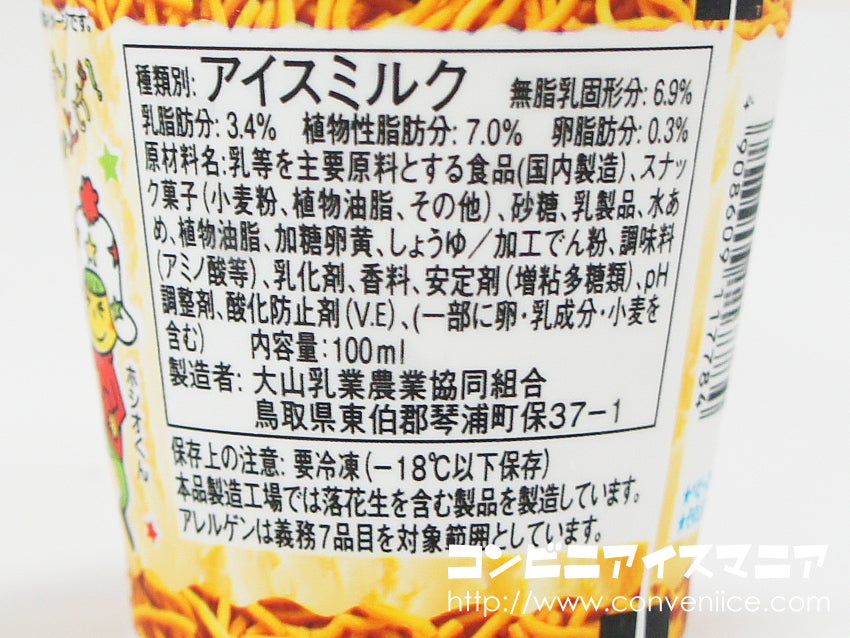 種類別:アイスミルク 無脂乳固形分:6.9%
乳脂肪分:3.4% 植物性脂肪分:7.0% 卵脂肪分:0.3%
原材料名:乳等を主要原料とする食品(国内製造)、スナッ
ク菓子(小麦粉、植物油脂、その他)、砂糖、乳製品、水あ
め、植物油脂、加糖卵黄、しょうゆ/加工でん粉、調味料
(アミノ酸等)、乳化剤、香料、安定剤(増粘多糖類)、pH
調整剤、酸化防止剤(V.E)、(一部に卵・乳成分・小麦を
含む) 内容量:100ml
製造者:大山乳業農業協同組合
鳥取県東伯郡琴浦町保37-1
保存上の注意:要冷凍(-18℃以下保存)
本品製造工場では落花生を含む製品を製造しています。
アレルゲンは義務7品目を対象範囲としています。
ホシオくん
コンビニアイスマニア
http://www.conveniice.com/